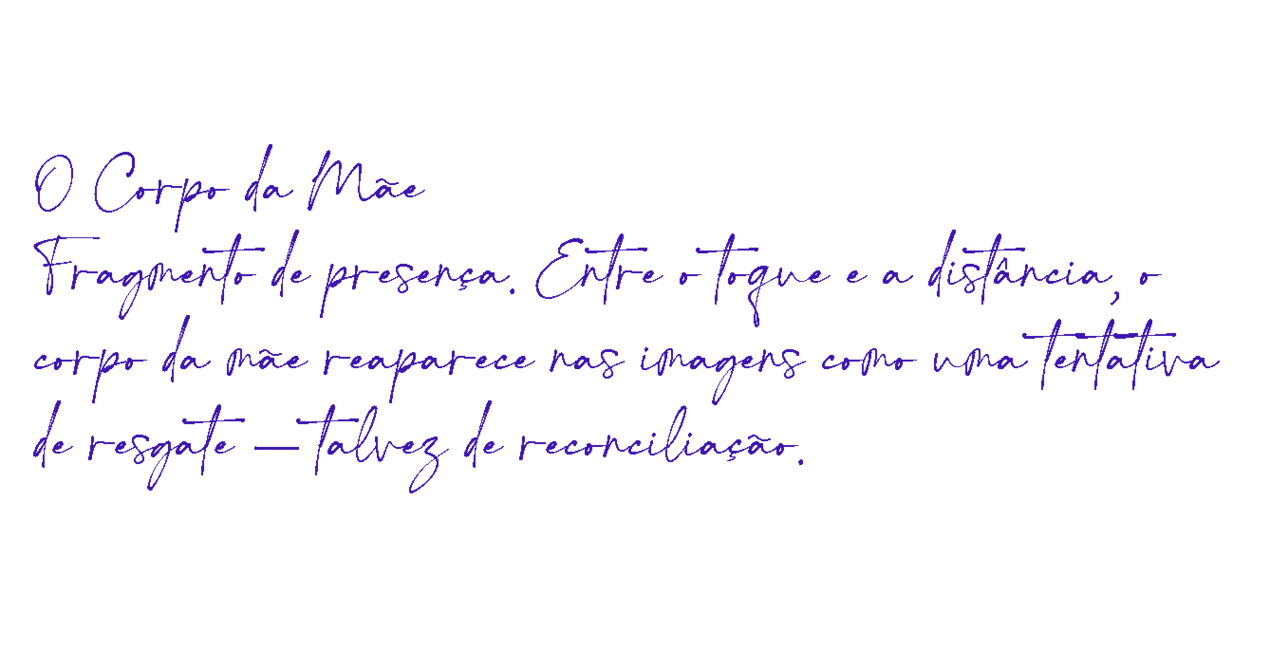 O Corpo da Mãe
Fragmento de presença. Entre o toque e a distância, o
corpo da mãe reaparece nas imagens como uma tentativa
de resgate — talvez de reconciliação.